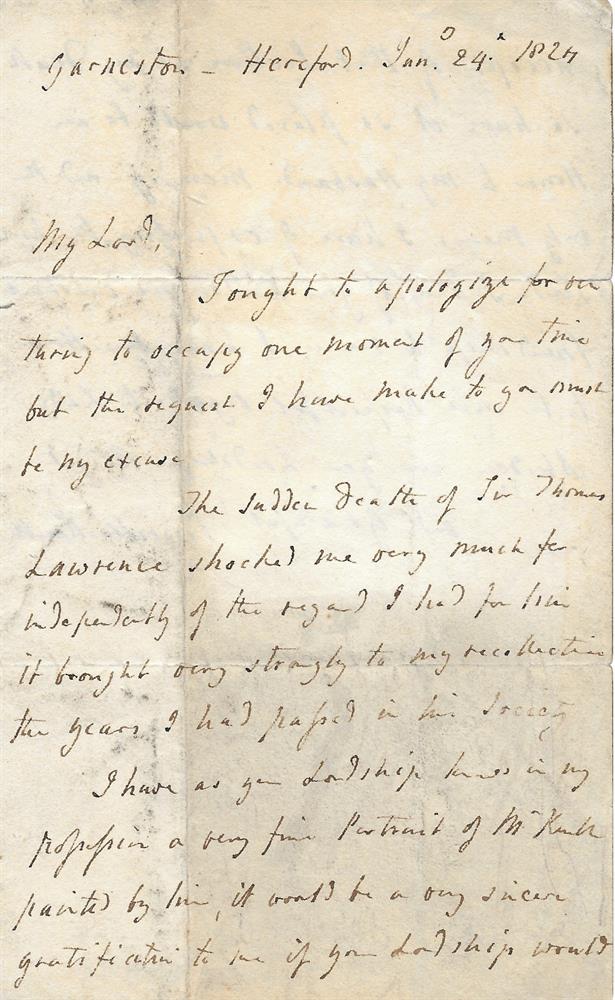 Garneston - Hereford. Jan.y 24. 1824
My Lord,
I ought to apologize for ven
turing to occupy one moment of you time
but the request I have make to you must
be my excuse
The sudden death of Sir Thomas
Lawrence shocked me very much for
independently of the regard I had for him
it brought very strongly to my recollection
the years I had passed in his Society
I have as your Lordship knows in my
possession a very fine Portrait of Mr
painted by him, it would be a very sincere
gratification to me if your Lordship would